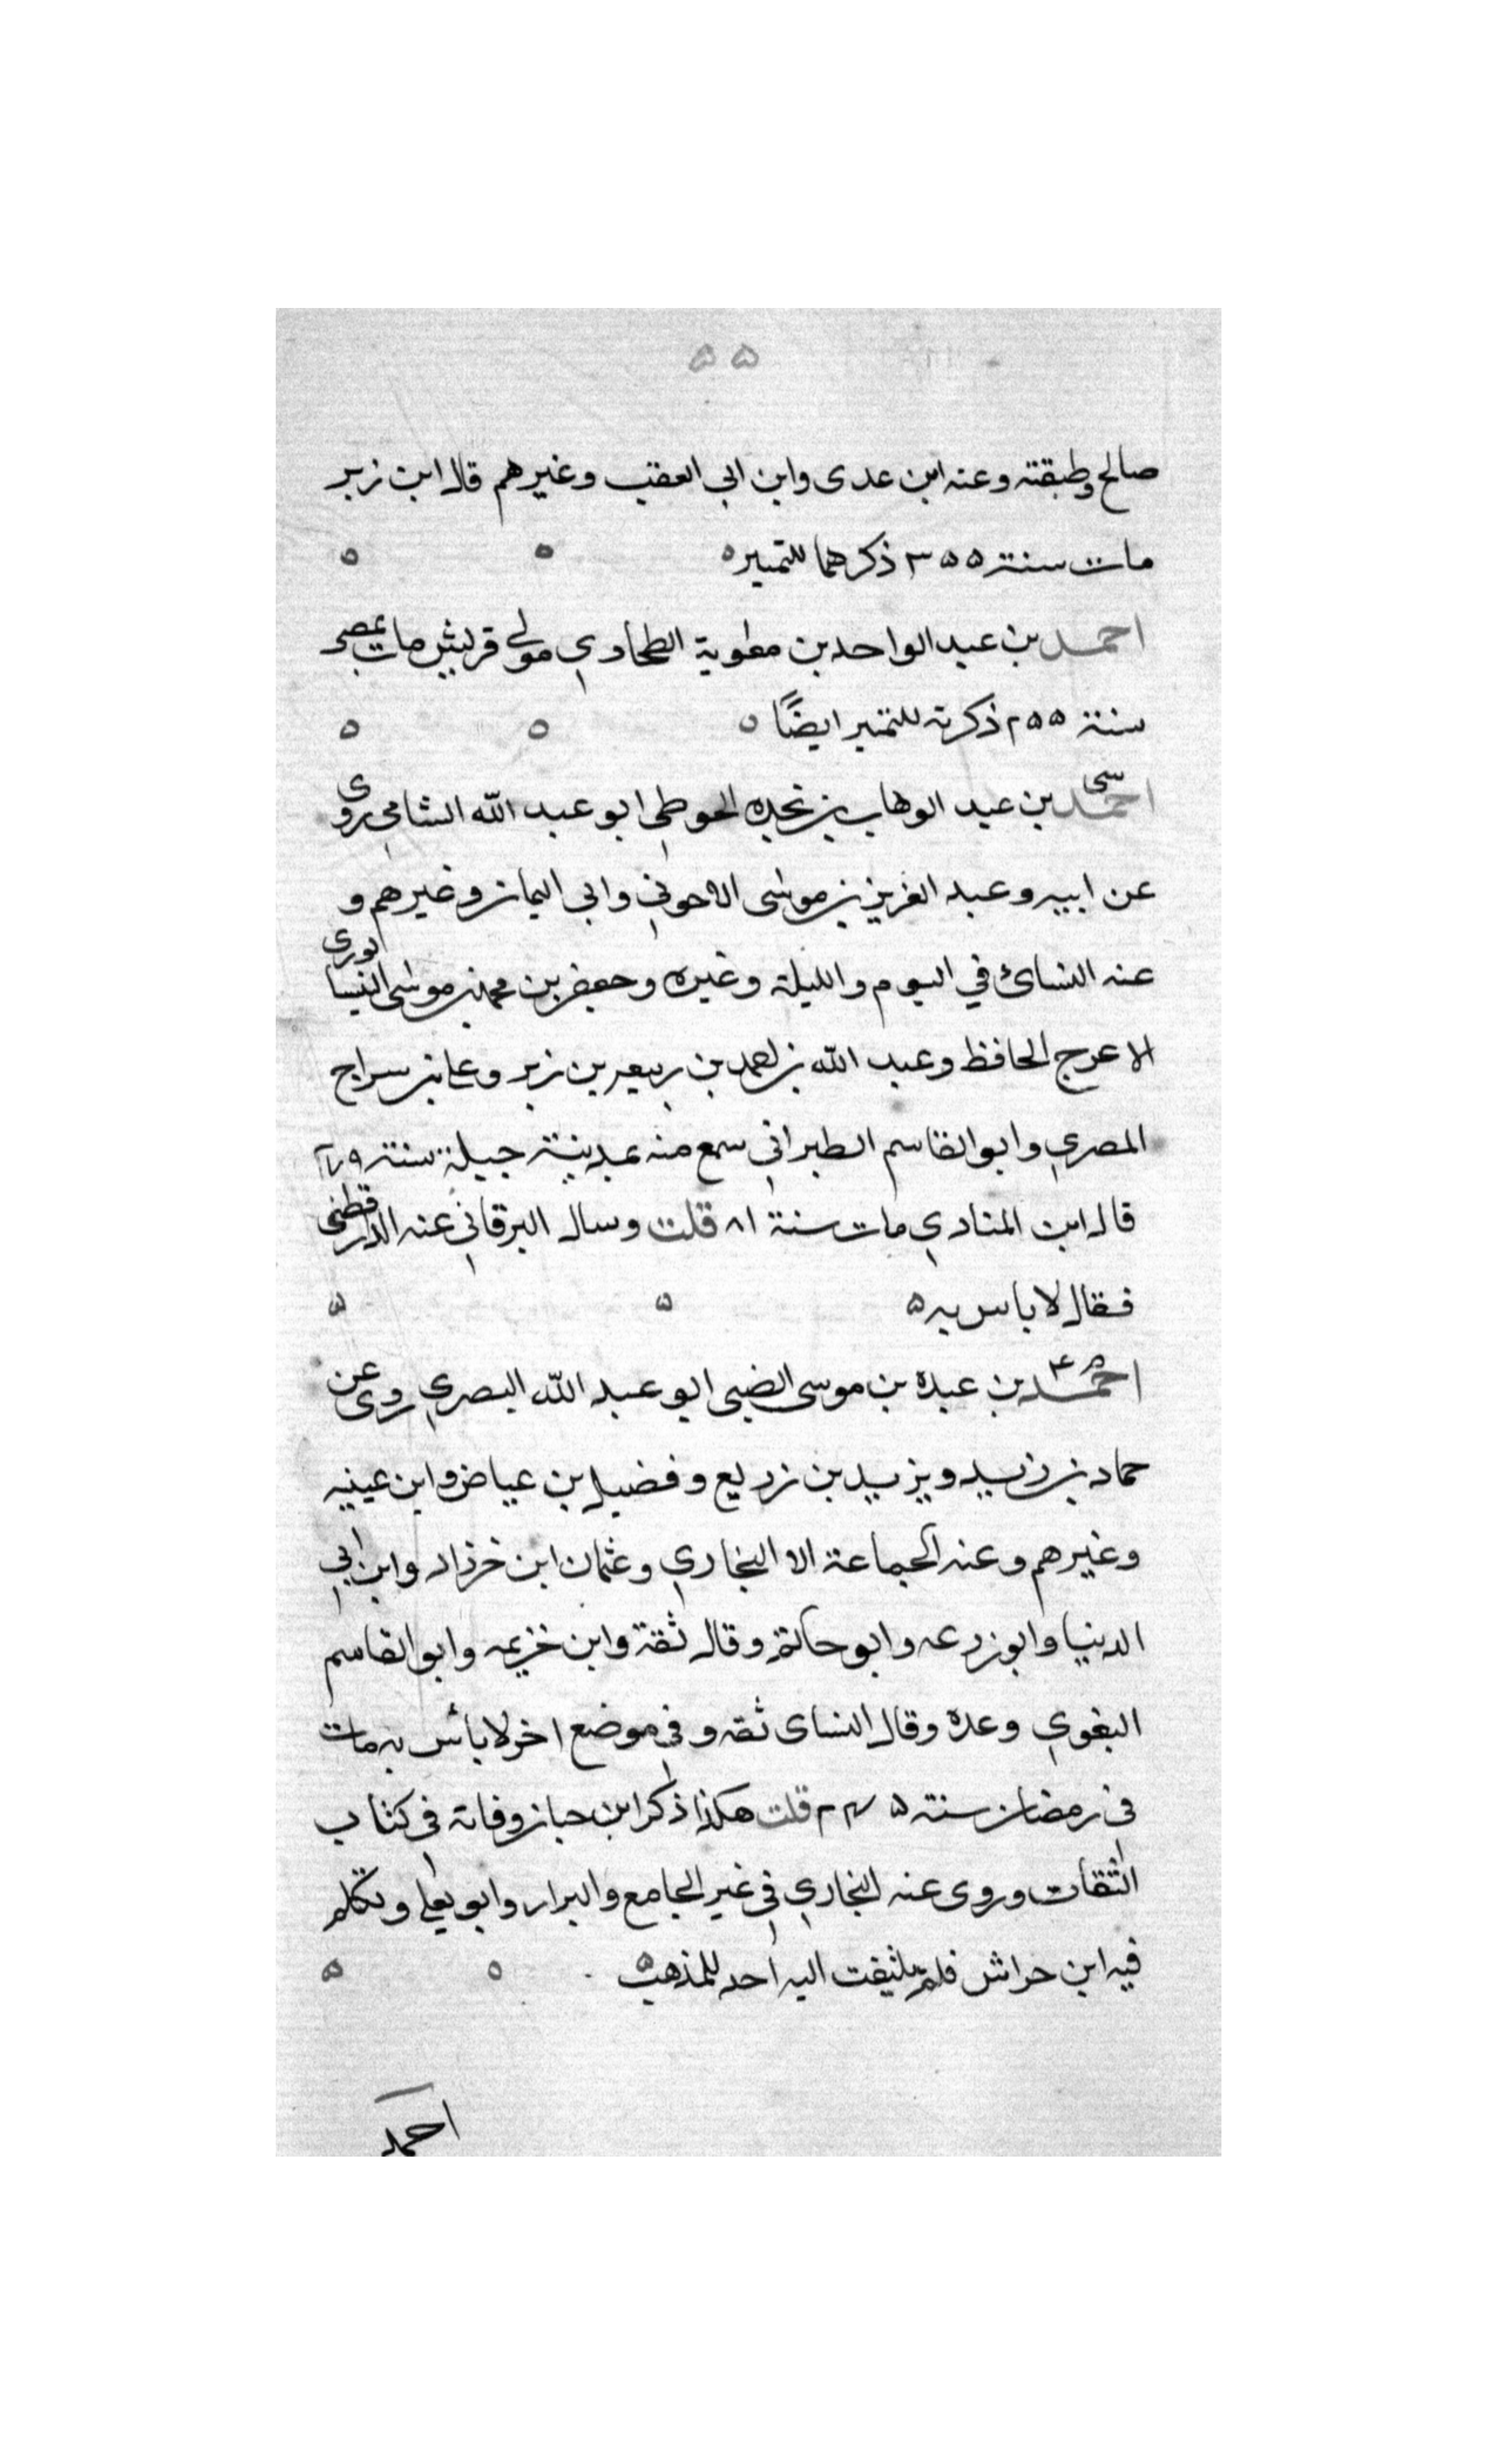 ٥٥
صالح وطبقته وعنه ابن عدى وابن ابى العقب وغيرهم قال ابن زبر
مات سنة ٣٥٥ ذكرهما للتميز ٥ ٥ ٥
احمد بن عبد الواحد بن معوية الطحاوي مولى قريش مات بمصر
سنة ٢٥٥ ذكرته للتميز ايضًا ٥ ٥ ٥
احمد سى بن عبد الوهاب بن نجده الحوطي ابو عبد الله الشامي روى
عن ابيه وعبد العزيز بن موسى الاحوني وابى اليمان وغيرهم و
عنه النسائ في اليوم والليلة وغيره وجعفر بن محمد بن موسى النيسابورى
الاعرج الحافظ وعبد الله بن احمد بن ربيعه بن زبر وعلي بن سراج
المصري وابو القاسم الطبراني سمع منه بمدينة جبلة سنة ٢٧٩
قال ابن المنادي مات سنة ٨١ قلت وسال البرقاني عنه الدارقطني
فقال لا باس به ٥ ٥ ٥
احمد م ٤ بن عبدة بن موسى الضبى ابو عبد الله البصري روى عن
حماد بن زيد ويزيد بن زريع وفضيل بن عياض وابن عيينه
وغيرهم وعنه الجماعة الا البخاري وعثمان ابن خرزاد وابن ابي
الدنيا وابو زرعه وابو حاتم وقال ثقة وابن خزيمه وابو القاسم
البغوي وعدة وقال النساى ثقه وفي موضع اخر لا بأس به مات
في رمضان سنة ٢٤٥ قلت هكذا ذكر ابن حبان وفاته في كتاب
الثقات وروى عنه البخاري في غير الجامع والبزار وابو يعلي وتكلم
فيه ابن خراش فلم يلتفت اليه احد للمذهب ٥ ٥ ٥
احمد